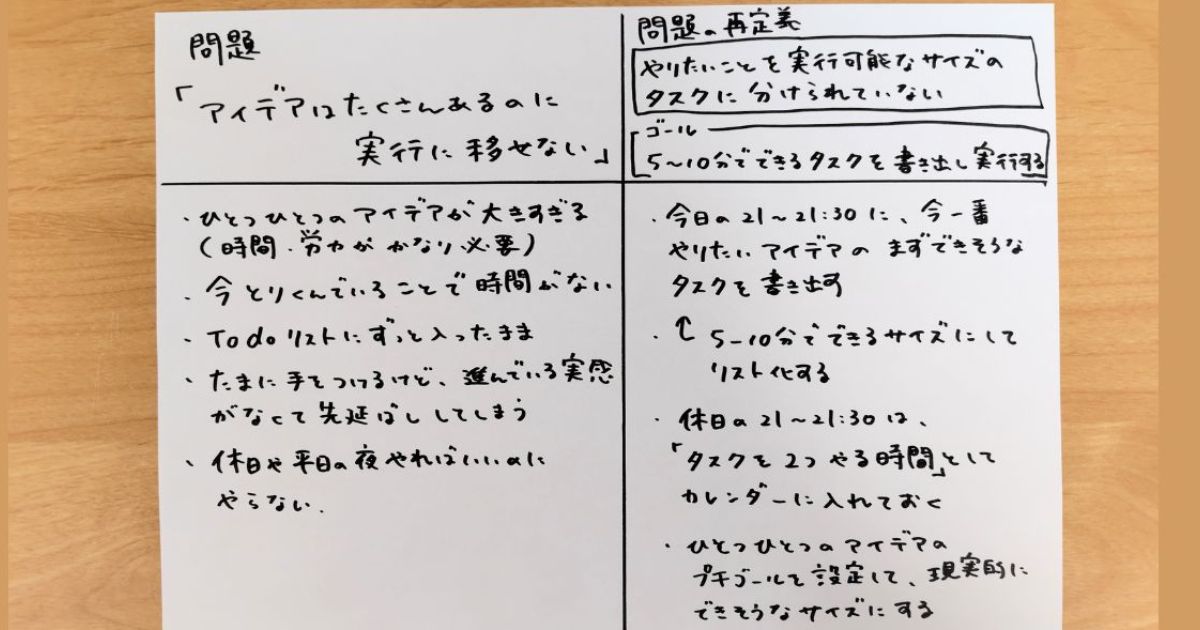 問題
「アイデアはたくさんあるのに
実行に移せない」
・ひとつひとつのアイデアが大きすぎる
（時間・労力がかなり必要）
・今とりくんでいることで時間がない
・Todoリストにずっと入ったまま
・たまに手をつけるけど、進んでいる実感
がなくて先延ばししてしまう
・休日や平日の夜やればいいのに
やらない.
問題の再定義
やりたいことを実行可能なサイズの
タスクに分けられていない
ゴール
5〜10分でできるタスクを書き出し実行する
・今日の21〜21:30に、今一番
やりたいアイデアのまずできそうな
タスクを書き出す
・↑5-10分でできるサイズにして
リスト化する
・休日の21〜21:30は、
「タスクを2つやる時間」として
カレンダーに入れておく
・ひとつひとつのアイデアの
プチゴールを設定して、現実的に
できそうなサイズにする